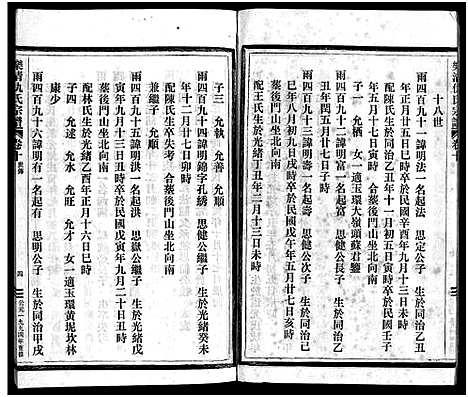 樂清仇氏宗譜 卷十
十八世
雨四百九十一諱明法一名起法 思定公子 生於同治乙丑
年正月十五日辰時卒於民國辛酉年九月十三日未時
配陳氏生於同治乙丑十一月初五日寅時卒於民國壬子
年五月十七日寅時 合蔡後門山坐北向南
子一 允栖 女一適玉環大嶺頭蘇君鑒
雨四百九十二諱明富一名起富 思健公長子 生於同治乙
丑年閏五月廿七日寅時
雨四百九十三諱明壽一名起壽 思健公次子 生於同治己
巳年八月初九日戌時卒於民國戊午年五月廿七日亥時
配王氏生於光緒丁丑年二月十三日未時
子三 允執 允善 允順
雨四百九十四諱明錦字孔綉 思健公繼子 生於光緒癸未
年十二月廿七日卯時
配陳氏生卒失考 合蔡後門山坐北向南
兼繼子 允順
雨四百九十五諱明洪一名起洪 思嶽公繼子 生於光緒戊
寅年九月十三日丑時卒於民國戊寅年九月二十日丑時
葬後門山坐北向南
配林氏生於光緒乙酉年正月十六日巳時
子四 允述 允水 允旺 允才 女一適玉環黄坭坎林
康少
雨四百九十六諱明有一名起有 思明公子 生於同治甲戌
樂清仇氏宗譜 卷十
四
公元一九九四年重修